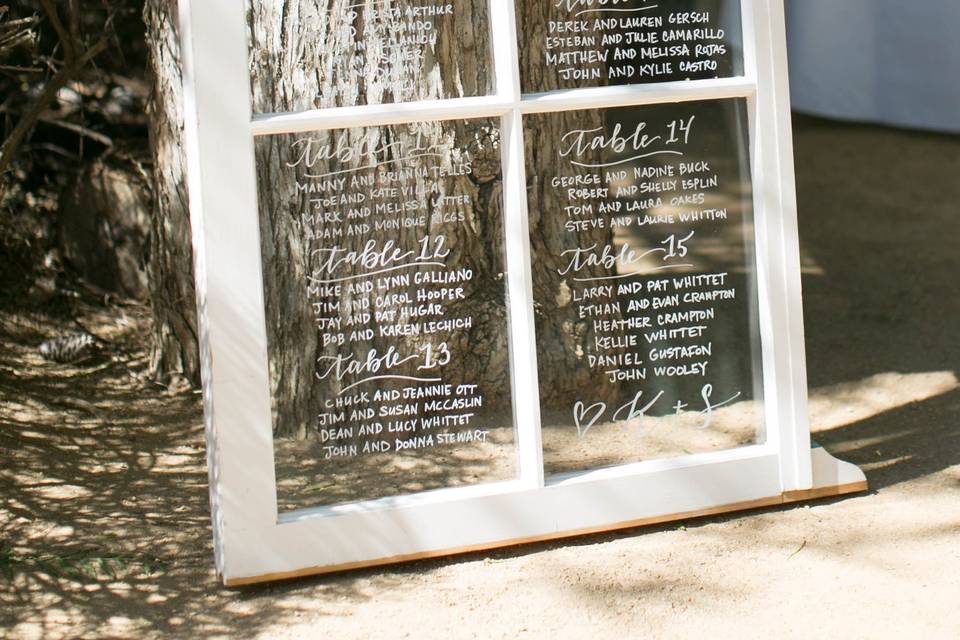 ARTHUR
BANDO
DEREK AND LAUREN GERSCH
ESTEBAN AND JULIE CAMARILLO
MATTHEW AND MELISSA ROJAS
JOHN AND KYLIE CASTRO
Table 11
MANNY AND BRIANNA TELLES
JOE AND KATE VILLA
MARK AND MELISSA
ADAM AND MONIQUE RIGGS
Table 12
MIKE AND LYNN GALLIANO
JIM AND CAROL HOOPER
JAY AND PAT HUGAR
BOB AND KAREN LECHICH
Table 13
CHUCK AND JEANNIE OTT
JIM AND SUSAN MCCASLIN
DEAN AND LUCY WHITTET
JOHN AND DONNA STEWART
Table 14
GEORGE AND NADINE BUCK
ROBERT AND SHELLY ESPLIN
TOM AND LAURA OAKES
STEVE AND LAURIE WHITTON
Table 15
LARRY AND PAT WHITTET
ETHAN AND EVAN CRAMPTON
HEATHER CRAMPTON
KELLIE WHITTET
DANIEL GUSTAFON
JOHN WOOLEY
♡ K + S